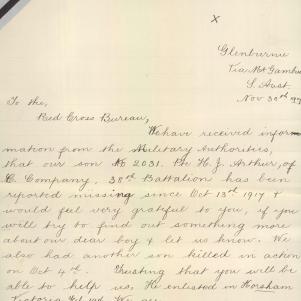 x
Glenburnie
Via Mt Gambier
S. Aust.
Nov 30th 1917
To the,
Red Cross Bureau,
We have received infor-
mation from the Military Authorities,
that our son No 2031. Pte H. J. Arthur, of
C. Company, 38th Battalion has been
reported missing since Oct 13th 1917 &
would feel very grateful to you, if you
will try to find out something more
about our dear boy & let us know. We
also had another son killed in action
on Oct 4th. Trusting that you will be
able to help us. He enlisted in Horsham
Victoria
We are